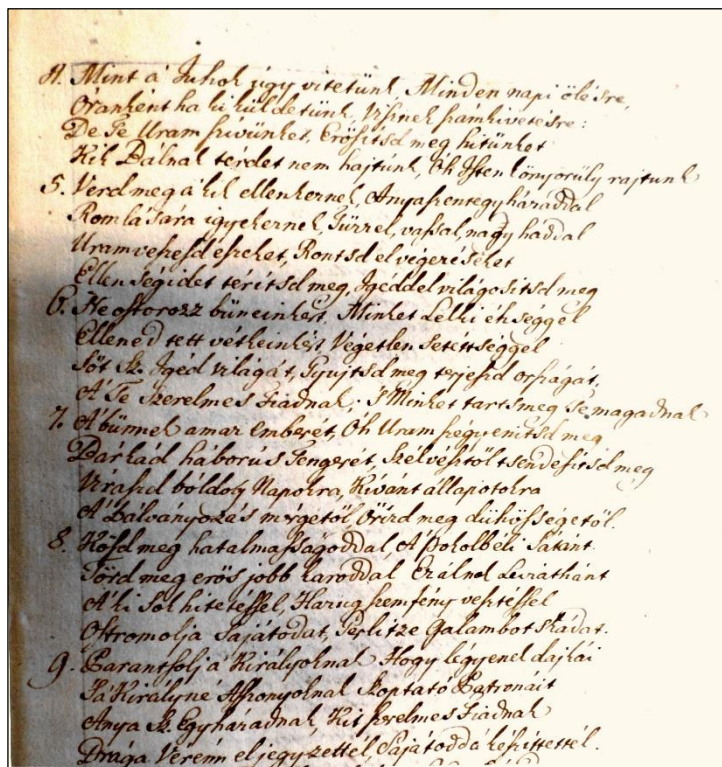 4. Mint á Juhok úgy vitetünk, Minden napi ölésre,
Óránként ha ki küldetünk, Visznek számkivetésre:
De Te Uram szívünket, Erősítsd meg hitünket
Kik Bálnak térdet nem hajtunk, Óh Isten könyörülj rajtunk
5. Verd meg á kik ellenkeznek, Anyaszentegyházaddal
Romlására igyekeznek, Tűzzel, vassal, nagy haddal
Uram veszesd észeket, Rontsd el végezéseket
Ellenségidet térítsd meg, Igéddel világosítsd meg
6. Ne ostorozz bűneinkért, Minket Lelki éhséggel
Ellened tett vétkeinkért Végetlen setéttséggel
Sőt Sz. Igéd világát, Gyujtsd meg terjeszd országát,
A Te Szerelmes Fiadnak, 's Minket tarts meg Te magadnak
7. A bűnnek amaz Emberét, Óh Uram szégyenítsd meg
Bárkád háborús Tengerét, Szélvésztől tsendesítsd meg
Viraszd bóldog Napokra, Kívánt állapotokra
A Bálványozás mérgétől, Őrizd meg dühösségétől.
8. Kösd meg hatalmasságoddal, A Pokolbéli Sátánt
Törd meg erős jobb karoddal Ez álnok Leviáthánt
A ki sok hitetéssel, Hazug szemfény vesztéssel
Ostromolja Sajátodat, Gerlitze Galambotskádat.
9. Parantsolj á Királyoknak Hogy légyenek dajkái
'S á Királyné Asszonyoknak Szoptató Patronái
Anya Sz. Egyházadnak, Kit szerelmes Fiadnak
Drága Vérénn eljegyzettél, Sajátoddá készíttettél.